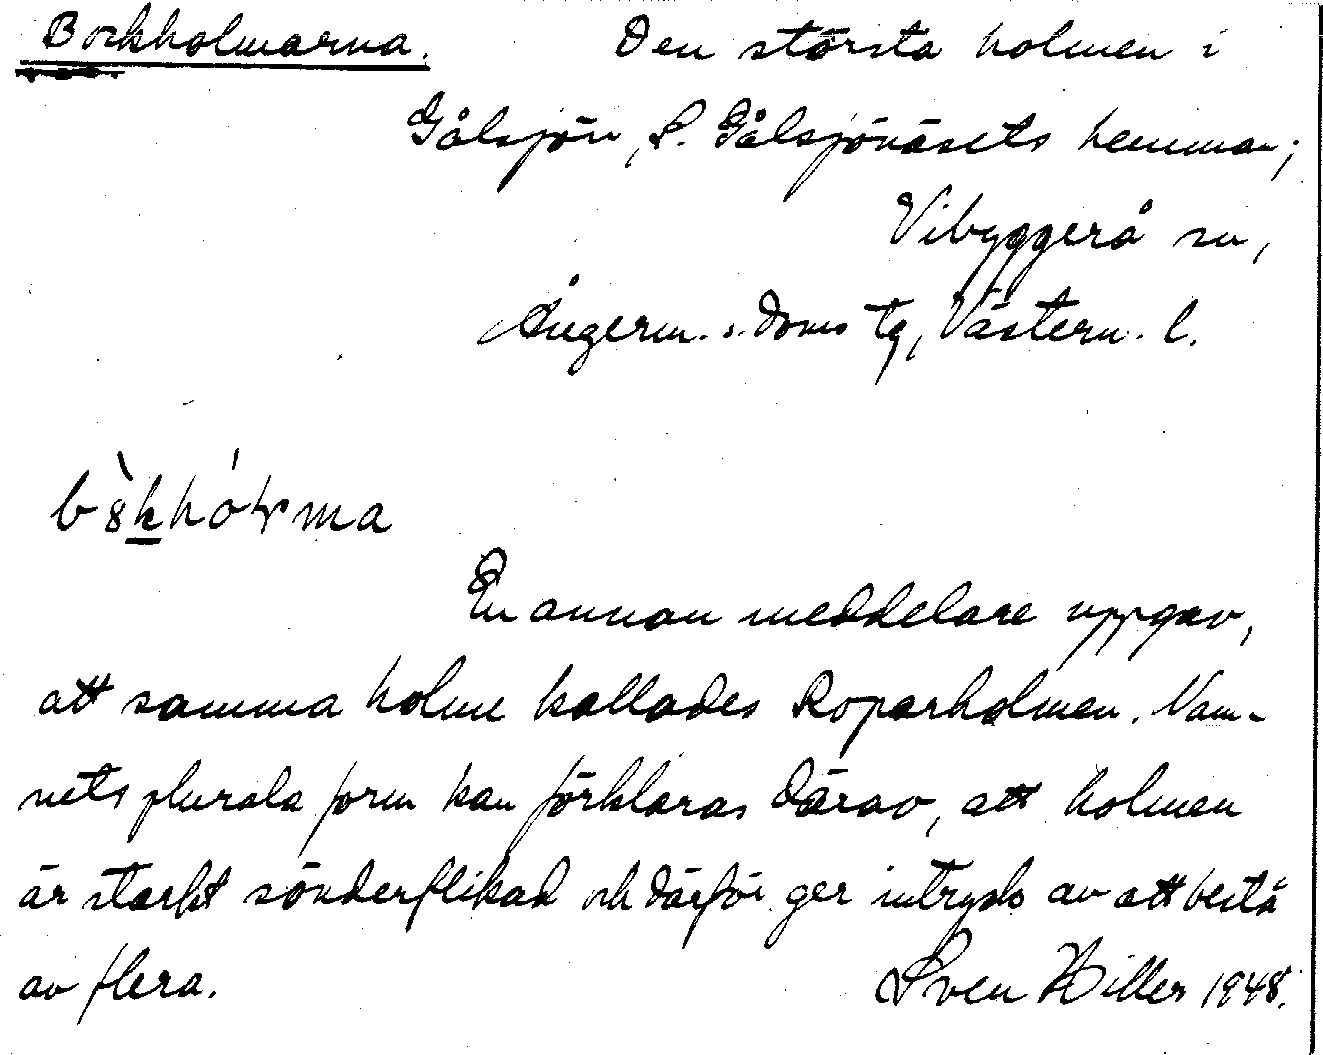 Bockholmarna. Den största holmen i
Gålsjön, S. Gålsjönäsets hemman;
Vibyggerå sn,
Ångerm. s. doms tg, Västern. l.
En annan meddelare uppgav,
att samma holme kallades Roparholmen. Nam-
nets plurala form kan förklaras därav, att holmen
är starkt sönderflikad och därför ger intryck av att bestå
av flera. Sven Hiller 1948.